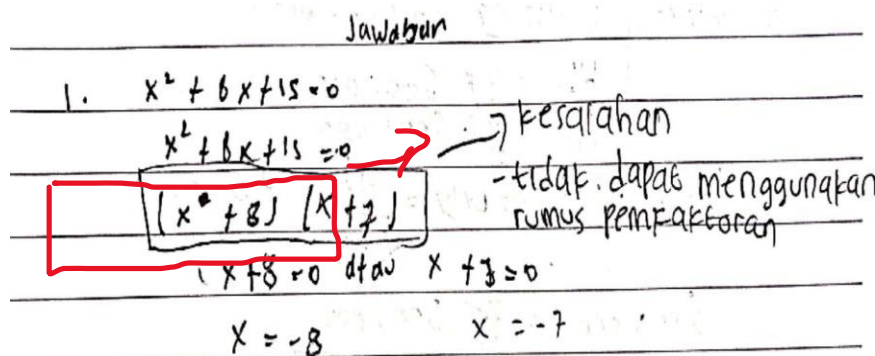 Jawaban
1. x² + 6x + 15 = 0
x² + 6x + 15 = 0
(x + 8) (x + 7)
x + 8 = 0 atau x + 7 = 0
x = -8 x = -7
kesalahan
- tidak dapat menggunakan
rumus pemfaktoran